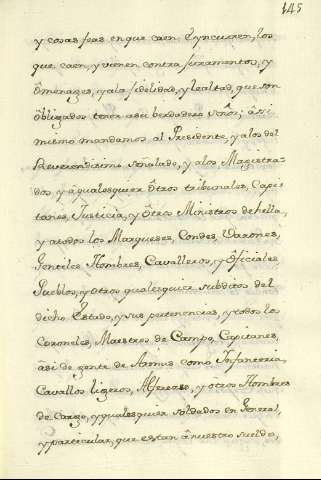 145
y cosas feas en que caen é yncurren, los
que caen, y vienen contra juramentos, y
Omenages, y a la fidelidad, y lealtad, que son
óbligados tener a su berdadero señor; ási
mismo mandamos al Presidente, y a los del
Reverendisimo señalado, y a los Magistra-
dos y á qualesquier ôtros tribunales, Capi-
tanes, Justicia, y ôtros Ministros de hella,
y a todos los Marqueses, Condes, Varones,
Gentiles Hombres, Cavalleros, y ôficiales
Pueblos, y otros qualesquier subditos del
dicho Estado, y sus pertenencias, y todos los
Coroneles, Maestres de Campo, Capitanes,
ási de gente de Armas como Infanteria,
Cavallos ligeros, Alfereses, y otros Hombres
de Cargo, y qualesquier soldados en General,
y particular, que estan â nuestro sueldo,